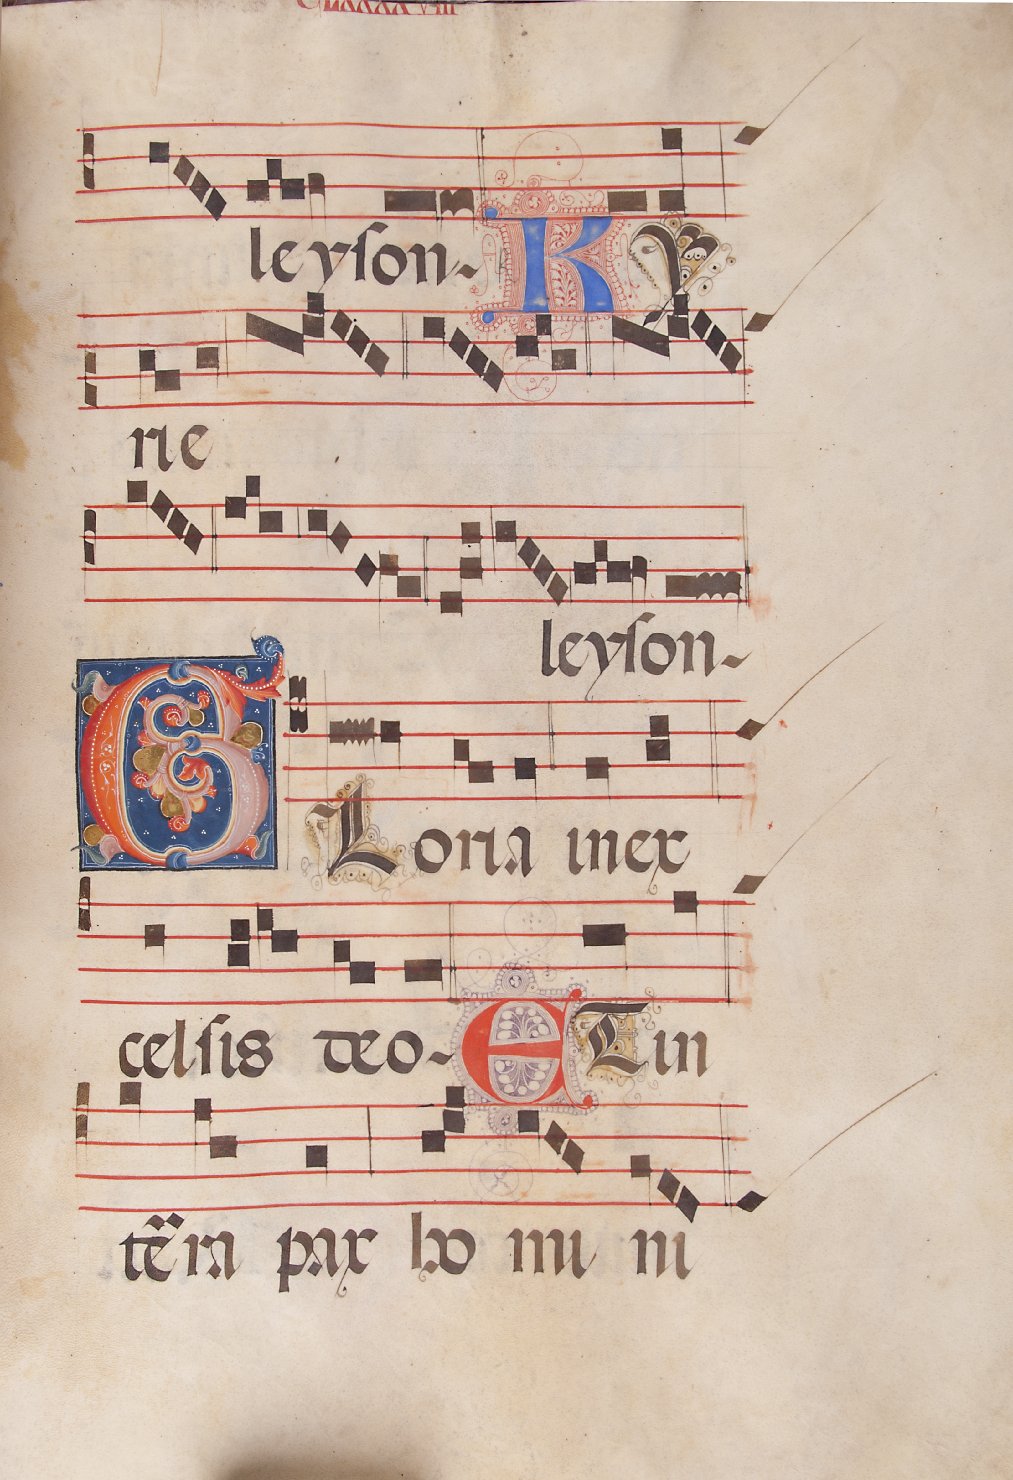 leyson~ Ky
rie
leyson~
Gloria inex
celsis deo~ Et in
terra pax ho mi ni